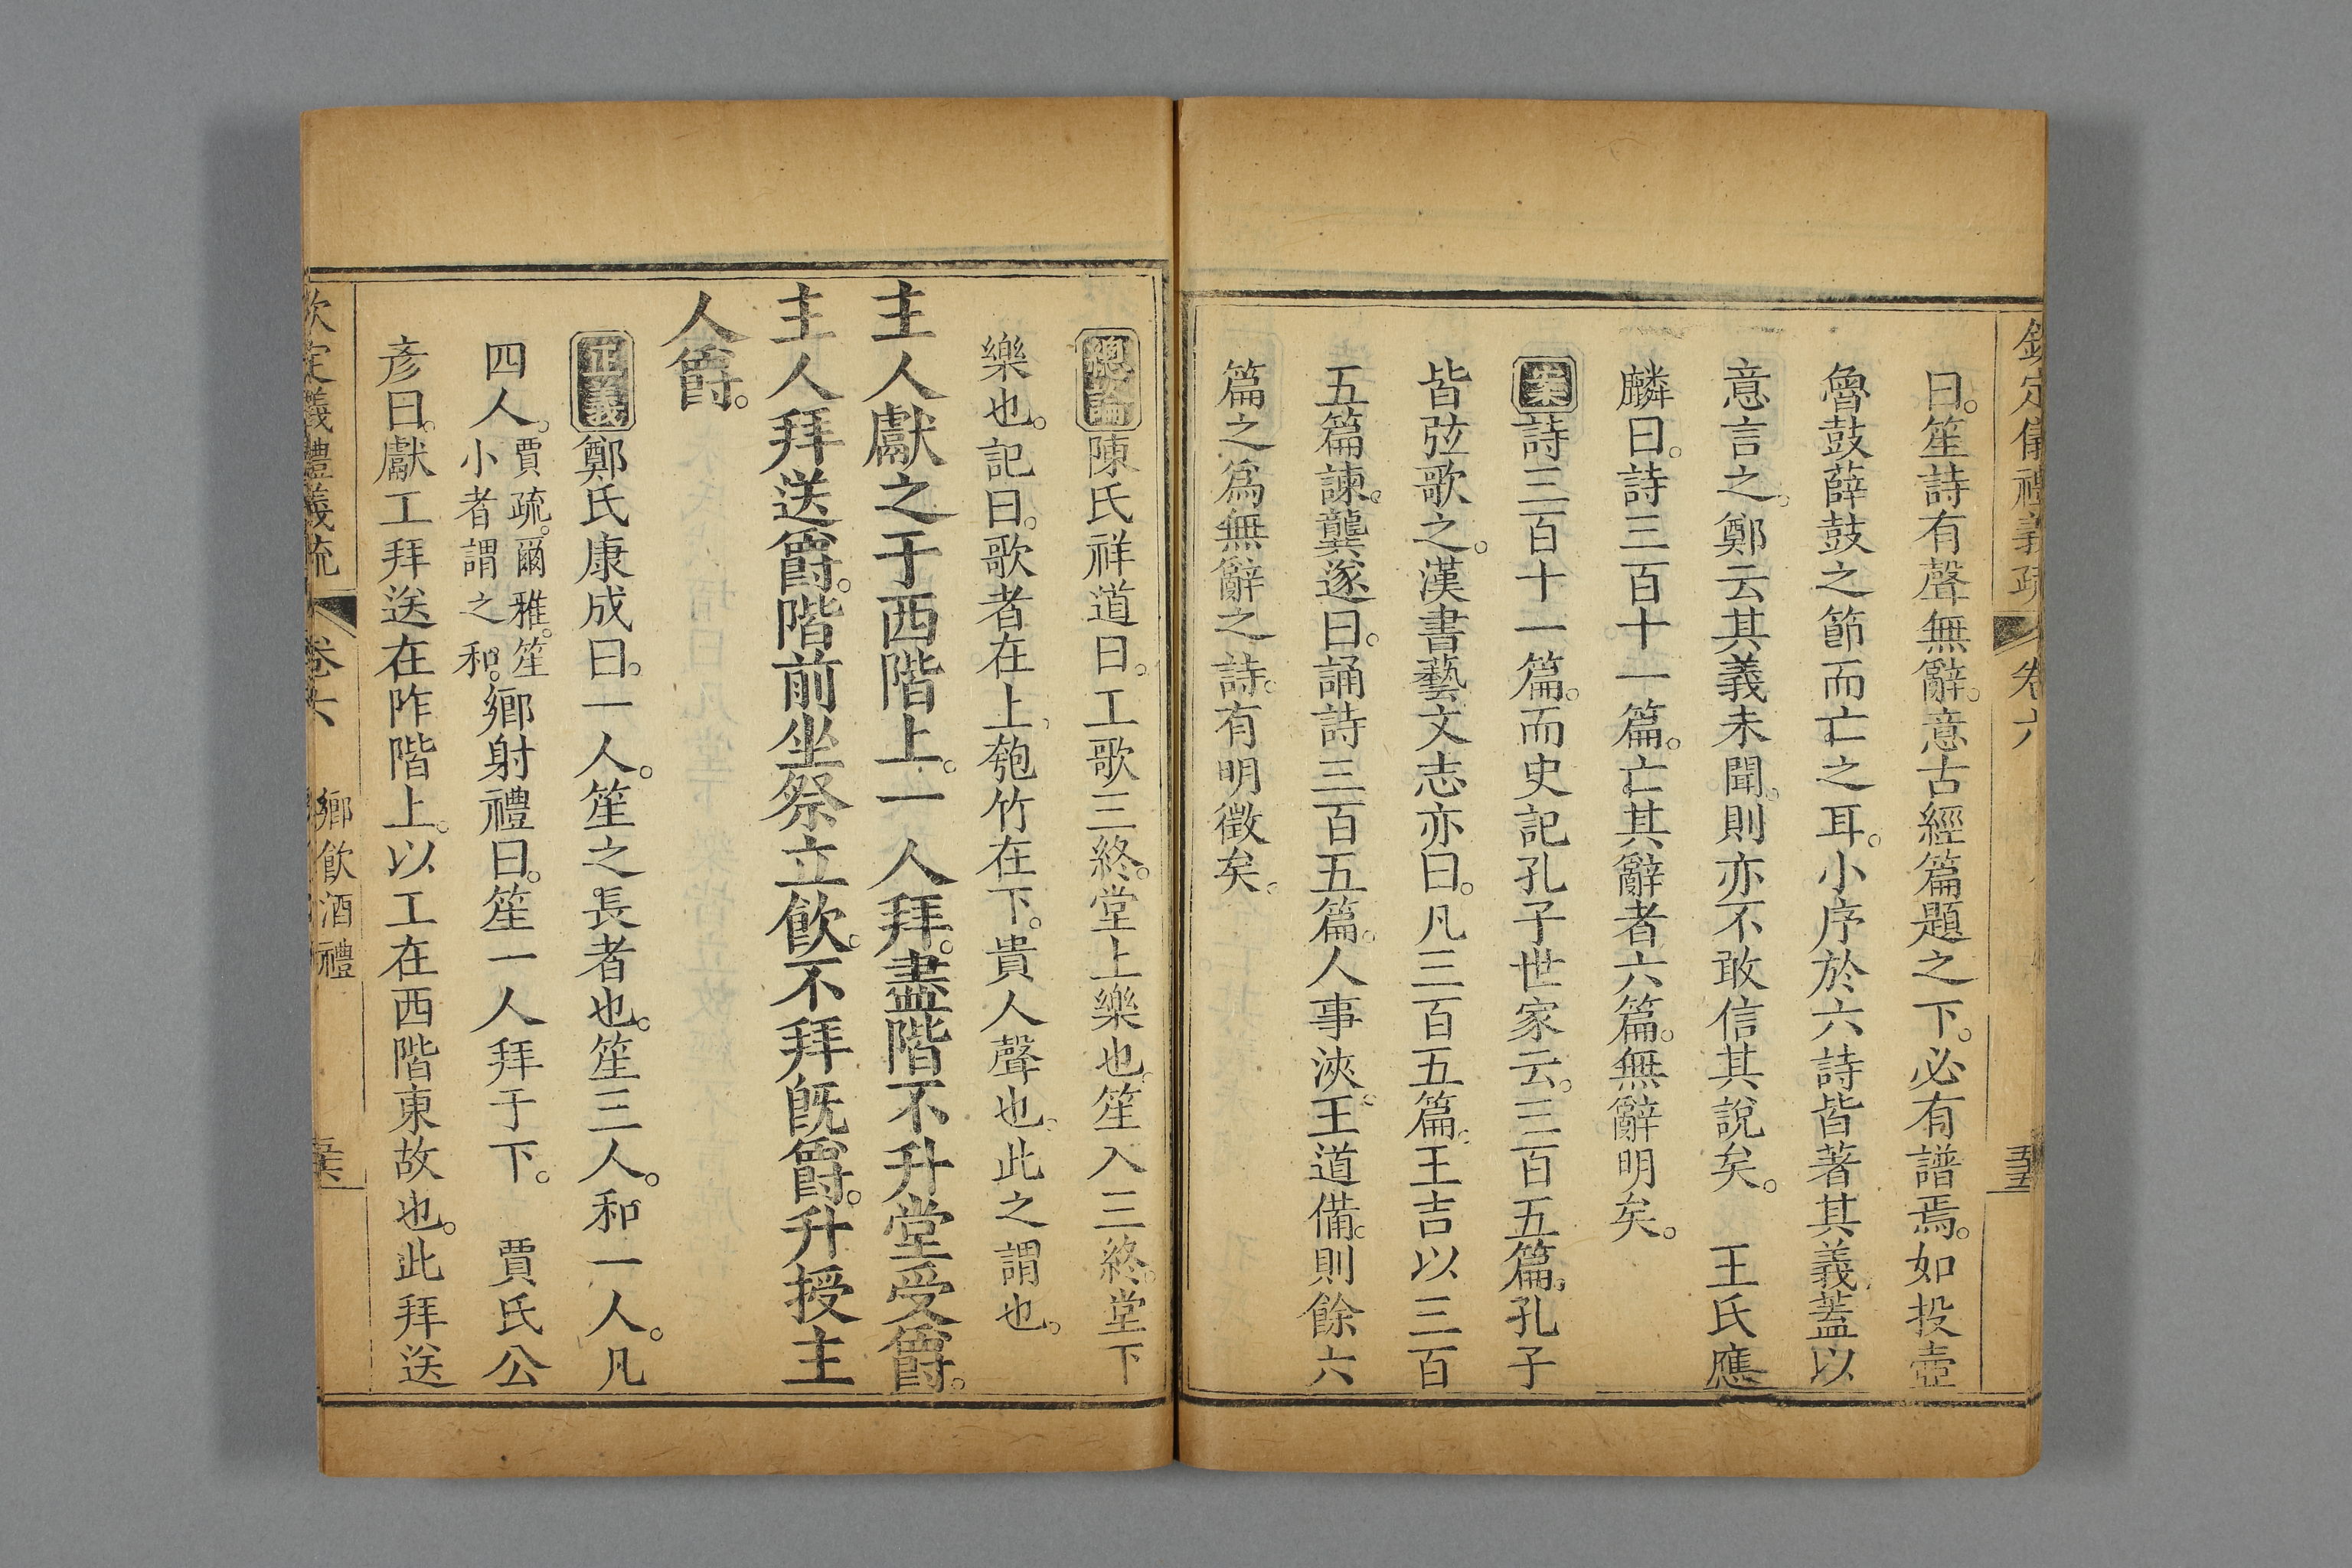 欽定儀禮義疏 卷六 五十五
曰。笙詩有聲無辭。意古經篇題之下。必有譜焉。如投壺
魯鼓薛鼓之節而亡之耳。小序於六詩皆著其義。蓋以
意言之。鄭云其義未聞。則亦不敢信其說矣。 王氏應
麟曰。詩三百十一篇。亡其辭者六篇。無辭明矣。
案詩三百十一篇。而史記孔子世家云。三百五篇。孔子
皆弦歌之。漢書藝文志亦曰。凡三百五篇。王吉以三百
五篇諫。龔遂曰。誦詩三百五篇。人事浹。王道備。則餘六
篇之爲無辭之詩。有明徵矣。
總論陳氏祥道曰。工歌三終。堂上樂也。笙入三終。堂下
樂也。記曰。歌者在上。匏竹在下。貴人聲也。此之謂也。
主人獻之于西階上。一人拜。盡階不升堂受爵。
主人拜送爵。階前坐祭立飲。不拜旣爵。升授主
人爵。
正義鄭氏康成曰。一人。笙之長者也。笙三人。和一人。凡
四人。賈疏。爾雅。笙小者謂之和。鄉射禮曰。笙一人拜于下。 賈氏公
彥曰。獻工拜送在阼階上。以工在西階東故也。此拜送
欽定儀禮義疏 卷六 鄉飲酒禮 五十六